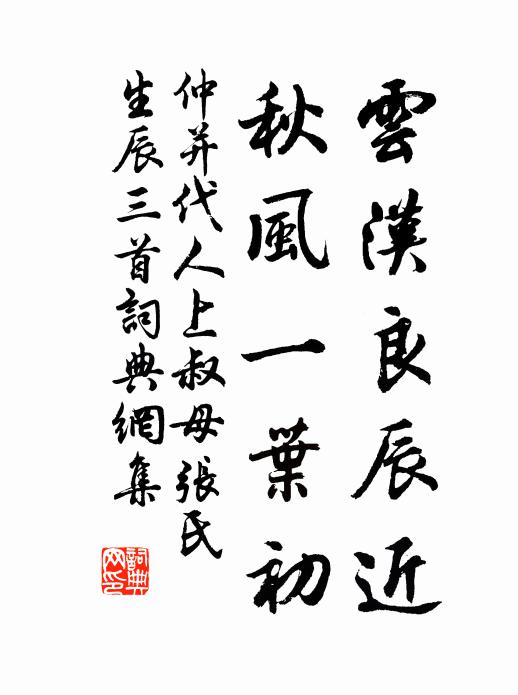 雲漢良辰近
秋風一葉初
仲并代人上叔母張氏
生辰三首詞典網集
詞典
网印